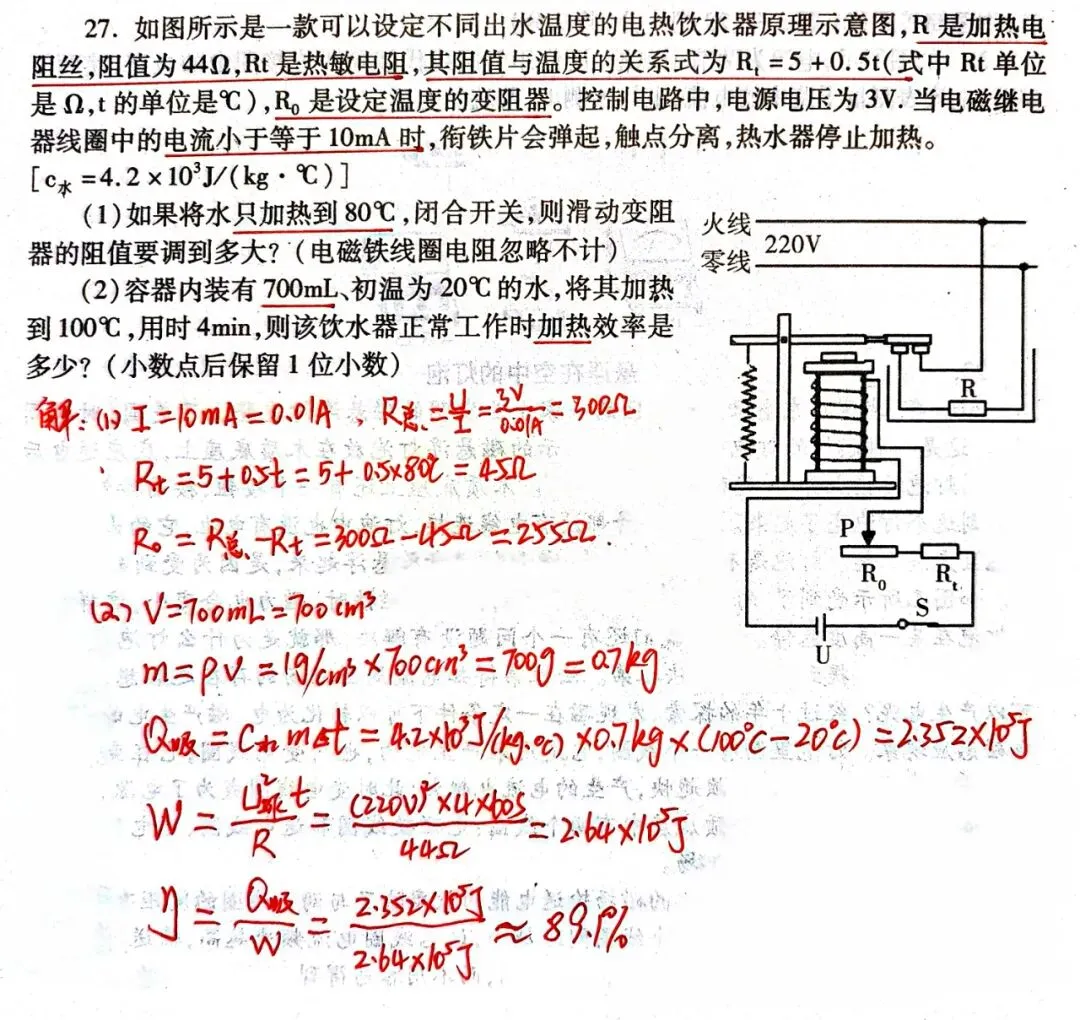 27. 如图所示是一款可以设定不同出水温度的电热饮水器原理示意图,R是加热电
阻丝,阻值为44Ω,Rt是热敏电阻,其阻值与温度的关系式为Rₜ=5+0.5t(式中Rt单位
是Ω,t的单位是℃),R₀是设定温度的变阻器。控制电路中,电源电压为3V.当电磁继电
器线圈中的电流小于等于10mA时,衔铁片会弹起,触点分离,热水器停止加热。
[c水=4.2×10³J/(kg·℃)]
(1)如果将水只加热到80℃,闭合开关,则滑动变阻
器的阻值要调到多大?(电磁铁线圈电阻忽略不计)
(2)容器内装有700mL、初温为20℃的水,将其加热
到100℃,用时4min,则该饮水器正常工作时加热效率是
多少?(小数点后保留1位小数)
火线
220V
零线
R
P
R₀
Rₜ
S
U
解:(1) I=10mA=0.01A , R总=U/I=3V/0.01A=300Ω
Rt=5+0.5t=5+0.5×80℃=45Ω
R₀=R总-Rt=300Ω-45Ω=255Ω.
(2) V=700mL=700cm³
m=ρV=1g/cm³×700cm³=700g=0.7kg
Q吸=C水m△t=4.2×10³J/(kg·℃)×0.7kg×(100℃-20℃)=2.352×10⁵J
W=U²t/R=(220V)²×4×60S/44Ω=2.64×10⁵J
η=Q吸/W=2.352×10⁵J/2.64×10⁵J≈89.1%